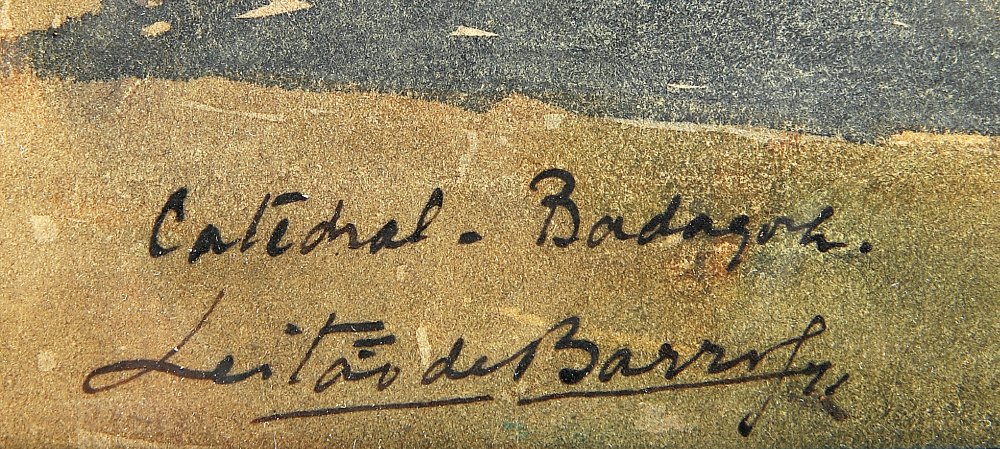 Catedral. Badagoz.
Leitão de Barros